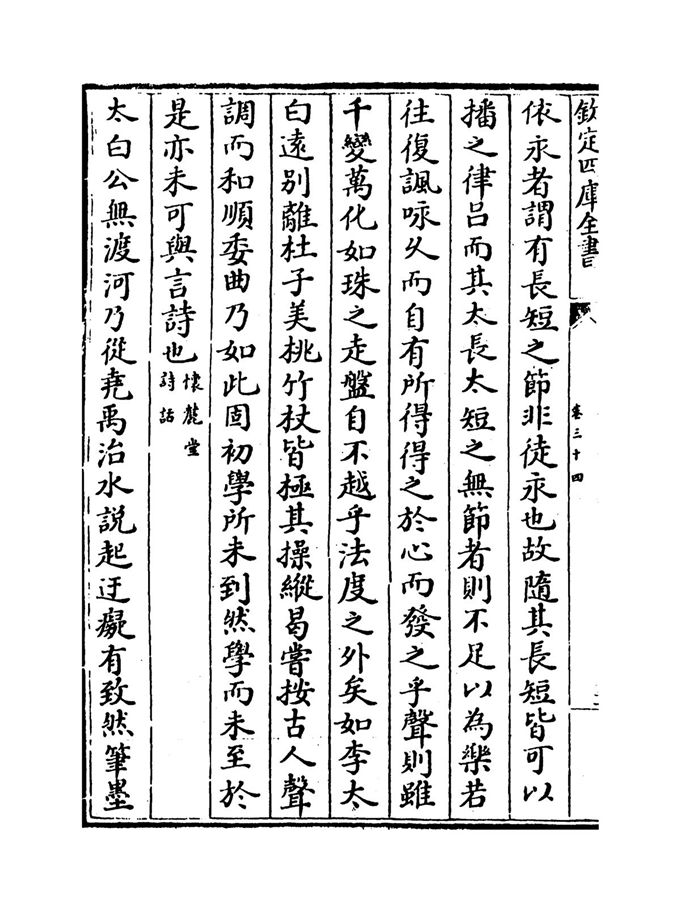 欽定四庫全書
卷三十四
依永者謂有長短之節非徒永也故隨其長短皆可以
播之律呂而其太長太短之無節者則不足以為樂若
往復諷咏乆而自有所得得之於心而發之乎聲則雖
千變萬化如珠之走盤自不越乎法度之外矣如李太
白遠別離杜子美桃竹杖皆極其操縱曷嘗按古人聲
調而和順委曲乃如此固初學所未到然學而未至於
是亦未可與言詩也懷麓堂詩話
太白公無渡河乃從堯禹治水説起迂癡有致然筆墨